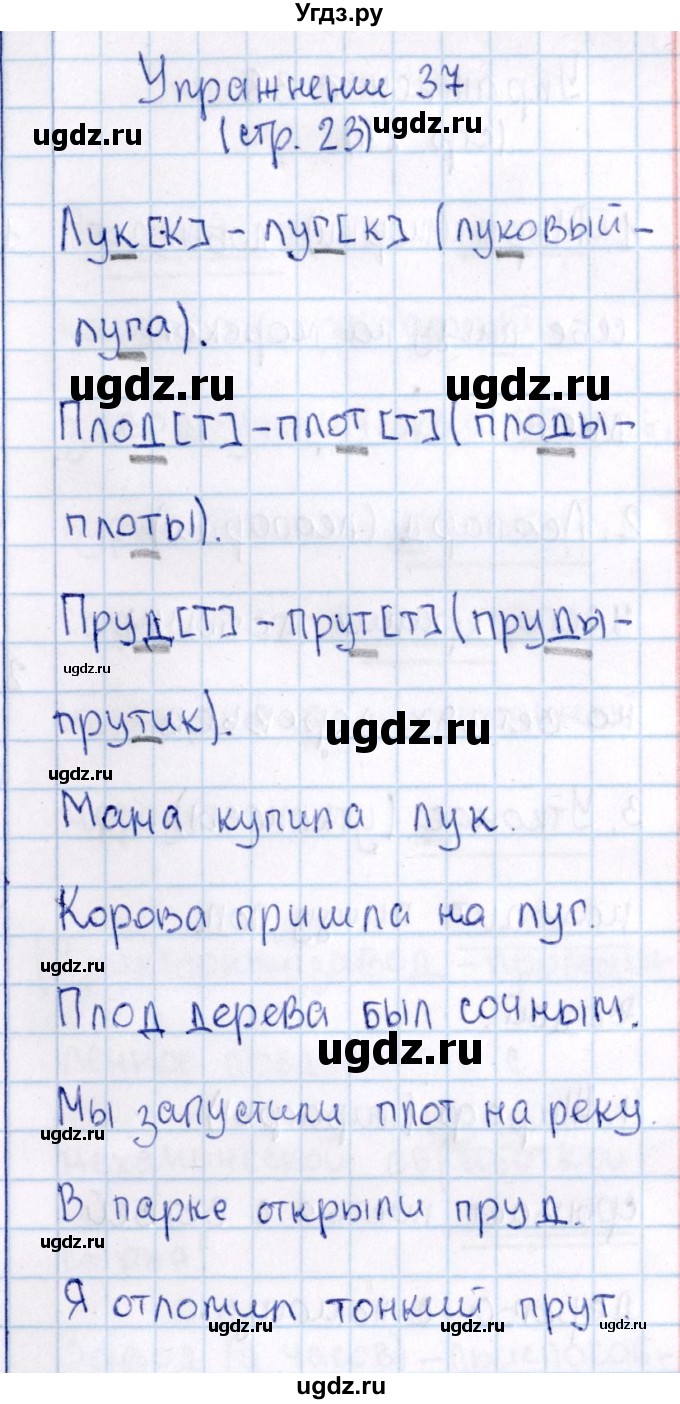 Угдз.ру
Упражнение 37
ugdz.ru ugdz.ru
(стр. 23)
Лук [к] - луг [к] (луковый-
луга).
ugdz.ru ugdz.ru
Плод [т] - плот [т] (плоды-
плоты).
Пруд [т] - прут [т] (пруды-
ugdz.ru
прутик).
ugdz.ru
ugdz.ru
Мама купила лук.
Корова пришла на луг.
ugdz.ru
Плод дерева был сочным.
ugdz.ru
Мы запустили плот на реку.
ugdz.ru
В парке открыли пруд.
ugdz.ru
Я отломил тонкий прут.
ugdz.ru ugdz.ru ugdz.ru
ugdz.ru